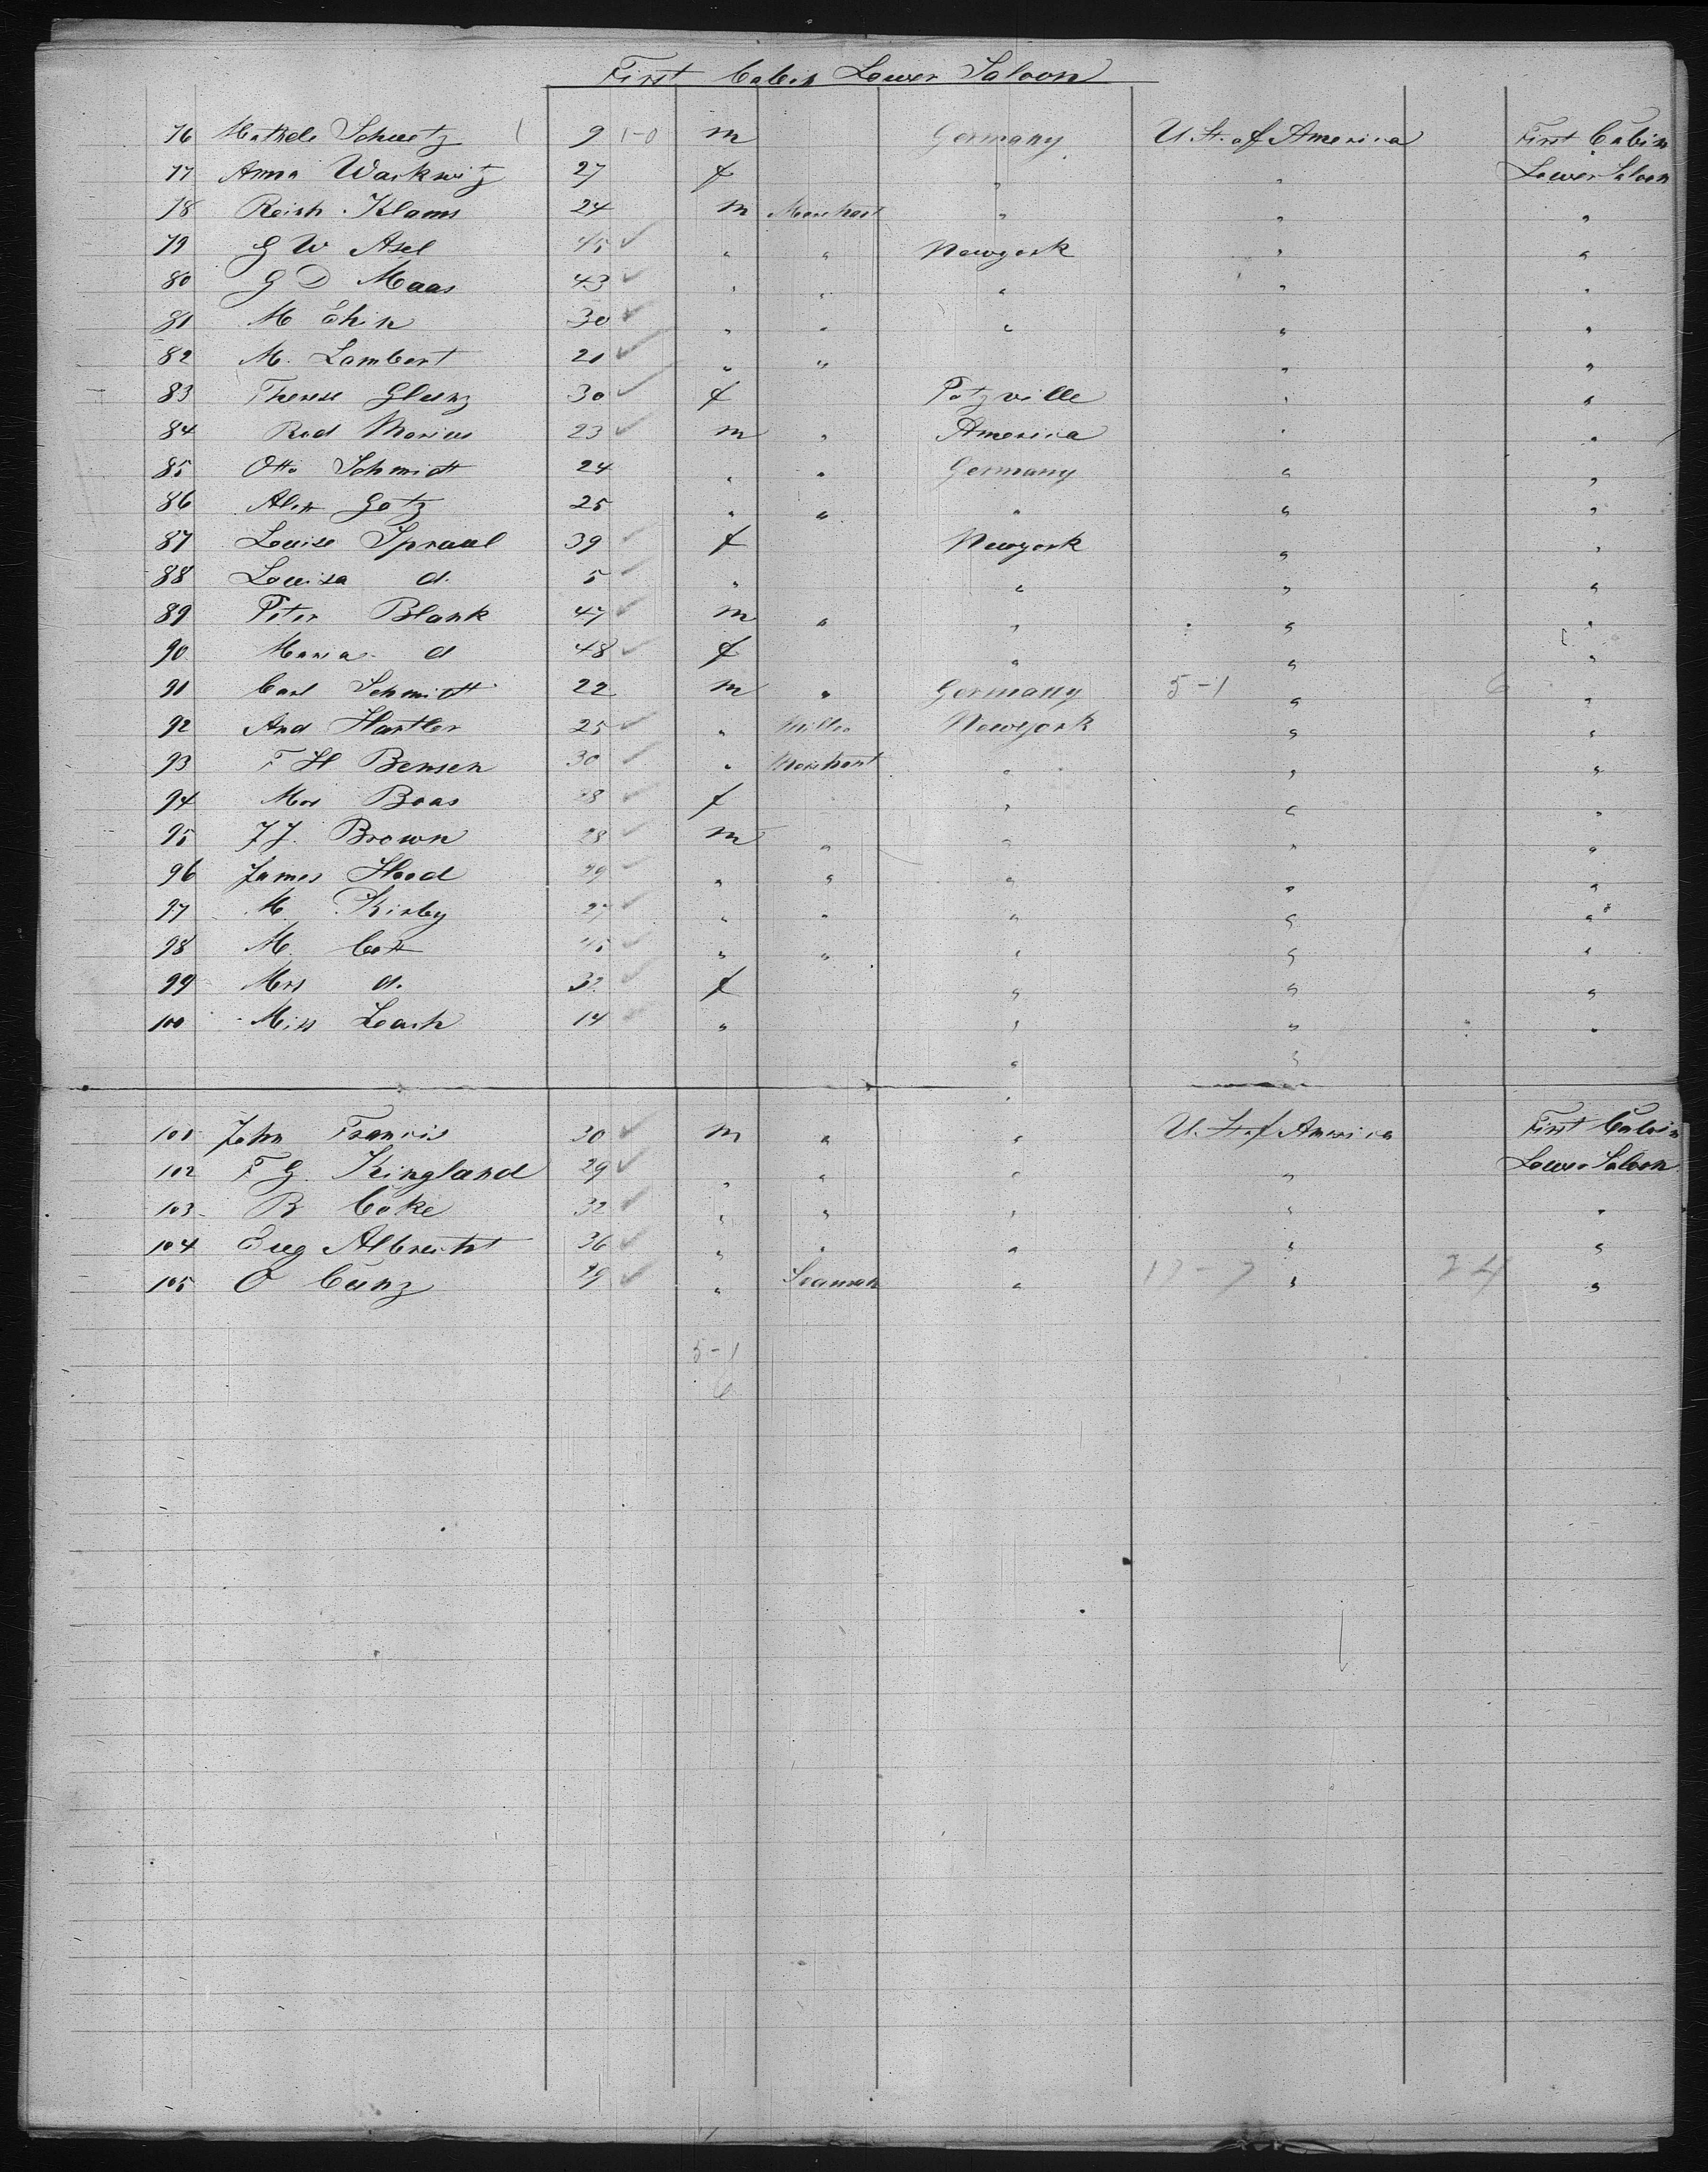 First Cabin Lower Saloon
76 Schuetz 9 1-0 m Germany U. St. of America First Cabin
77 Anna Warkwitz 27 f " " Lower Saloon
78 Klams 24 m Merchant " " "
79 G W Asel 45 " " Newyork " "
80 G D Maas 43 " " " " "
81 M 30 " " " " "
82 M. Lambert 21 " " " " "
83 Therese Glunz 30 f Potzville " "
84 Rud Marius 23 m " America " "
85 Otto Schmidt 24 " " Germany " "
86 Alex Götz 25 " " " " "
87 Louise Spraul 39 f Newyork " "
88 Louisa d. 5 " " " "
89 Peter Blank 47 m " " " "
90 Maria d 48 f " " "
91 Carl Schmidt 22 m " Germany 5-1 " 6 "
92 And Hartler 25 " Miller Newyork " "
93 F H Bensen 30 " Merchant " " "
94 Mrs Boas 28 f " " "
95 J J. Brown 28 m " " " "
96 James Hood 29 " " " " "
97 M. Kirby 27 " " " " "
98 M. 45 " " " " "
99 Mrs d. 32 f " " "
100 Miss Leach 14 " " " "
" "
101 John Francis 30 m " " U. St. of America First Cabin
102 F G Kingland 29 " " " " Lower Saloon
103 B Coke 32 " " " " "
104 Eug Albrecht 36 " " " " "
105 O Cunz 29 " Seaman " 17-7 " 24 "
5-1
6